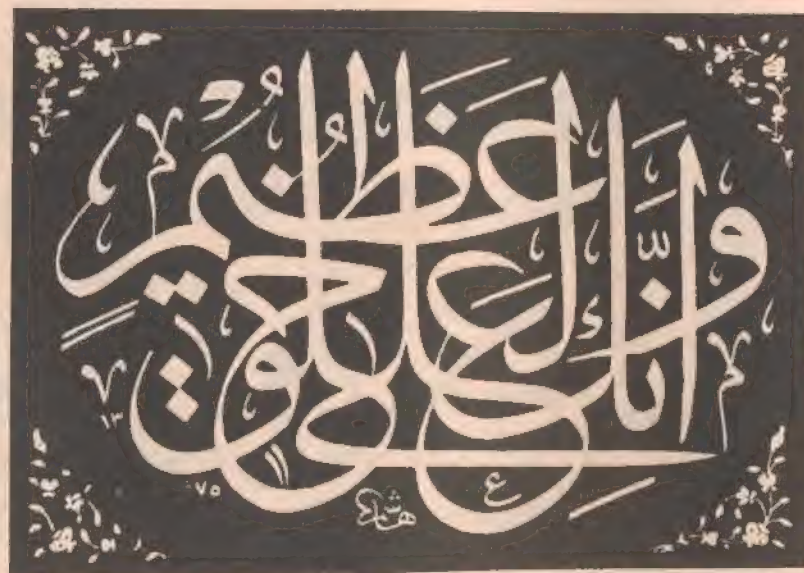 وَإِنَّكَ لَعَلَىٰ خُلُقٍ عَظِيمٍ
هاشم
١٣٧٥